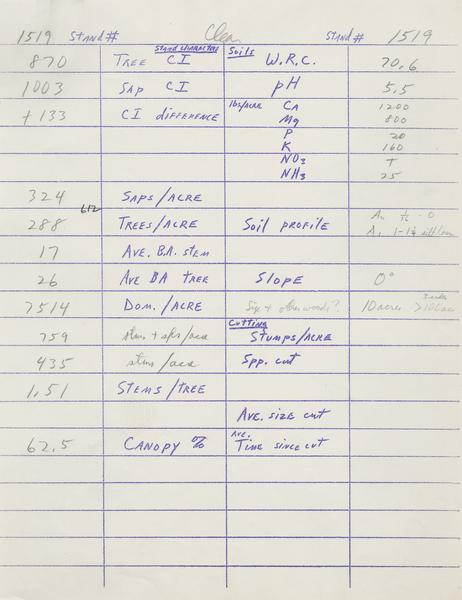 1519 STAND # Clea STAND # 1519
STAND CHARACTERS Soils
870 TREE CI W.R.C. 70.6
1003 SAP CI pH 5.5
+133 CI DIFFERENCE lbs/acre CA 1200
Mg 800
P 20
K 160
NO3 T
NH3 25
324 SAPS/ACRE
612
288 TREES/ACRE Soil profile
17 AVE. B.A. STEM
26 AVE BA TREE SLOPE 0°
7514 DOM./ACRE 10 acres
Cutting
759 stems + sps/acre STUMPS/ACRE
435 stems/acre Spp. cut
1.51 STEMS/TREE
AVE. SIZE CUT
62.5 CANOPY % AVE. TIME SINCE CUT